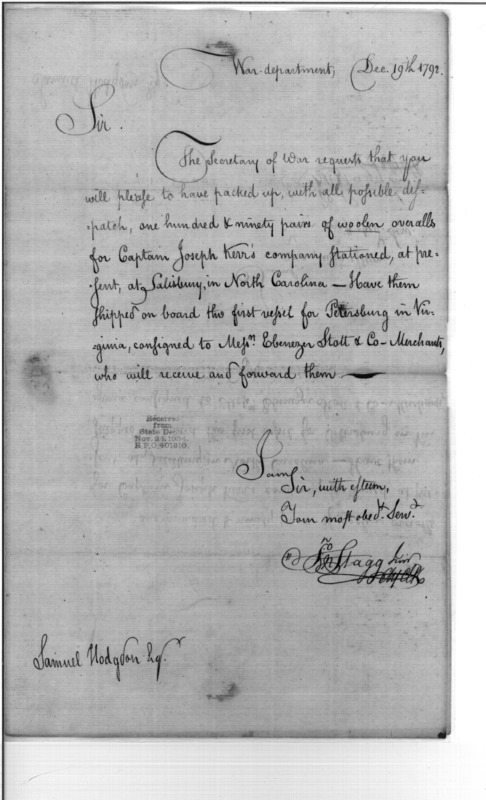 War-department, Dec. 19th 1792.
Sir.
The Secretary of War requests that you
will please to have packed up, with all possible dis-
-patch, one hundred & ninety pairs of woolen overalls
for Captain Joseph Kerr's company stationed, at pre-
-sent, at Salisbury, in North Carolina — Have them
shipped on board the first vessel for Petersburg in Vir-
-ginia, consigned to Messrs. Ebenezer Stott & Co - Merchants,
who will receive and forward them —
Received
from
State Dept.
Nov. 21,
R.P.O. 401810.
I am
Sir, with esteem,
Your most obedt. Servt.
Jno Stagg Junr
Samuel Hodgdon Esqr